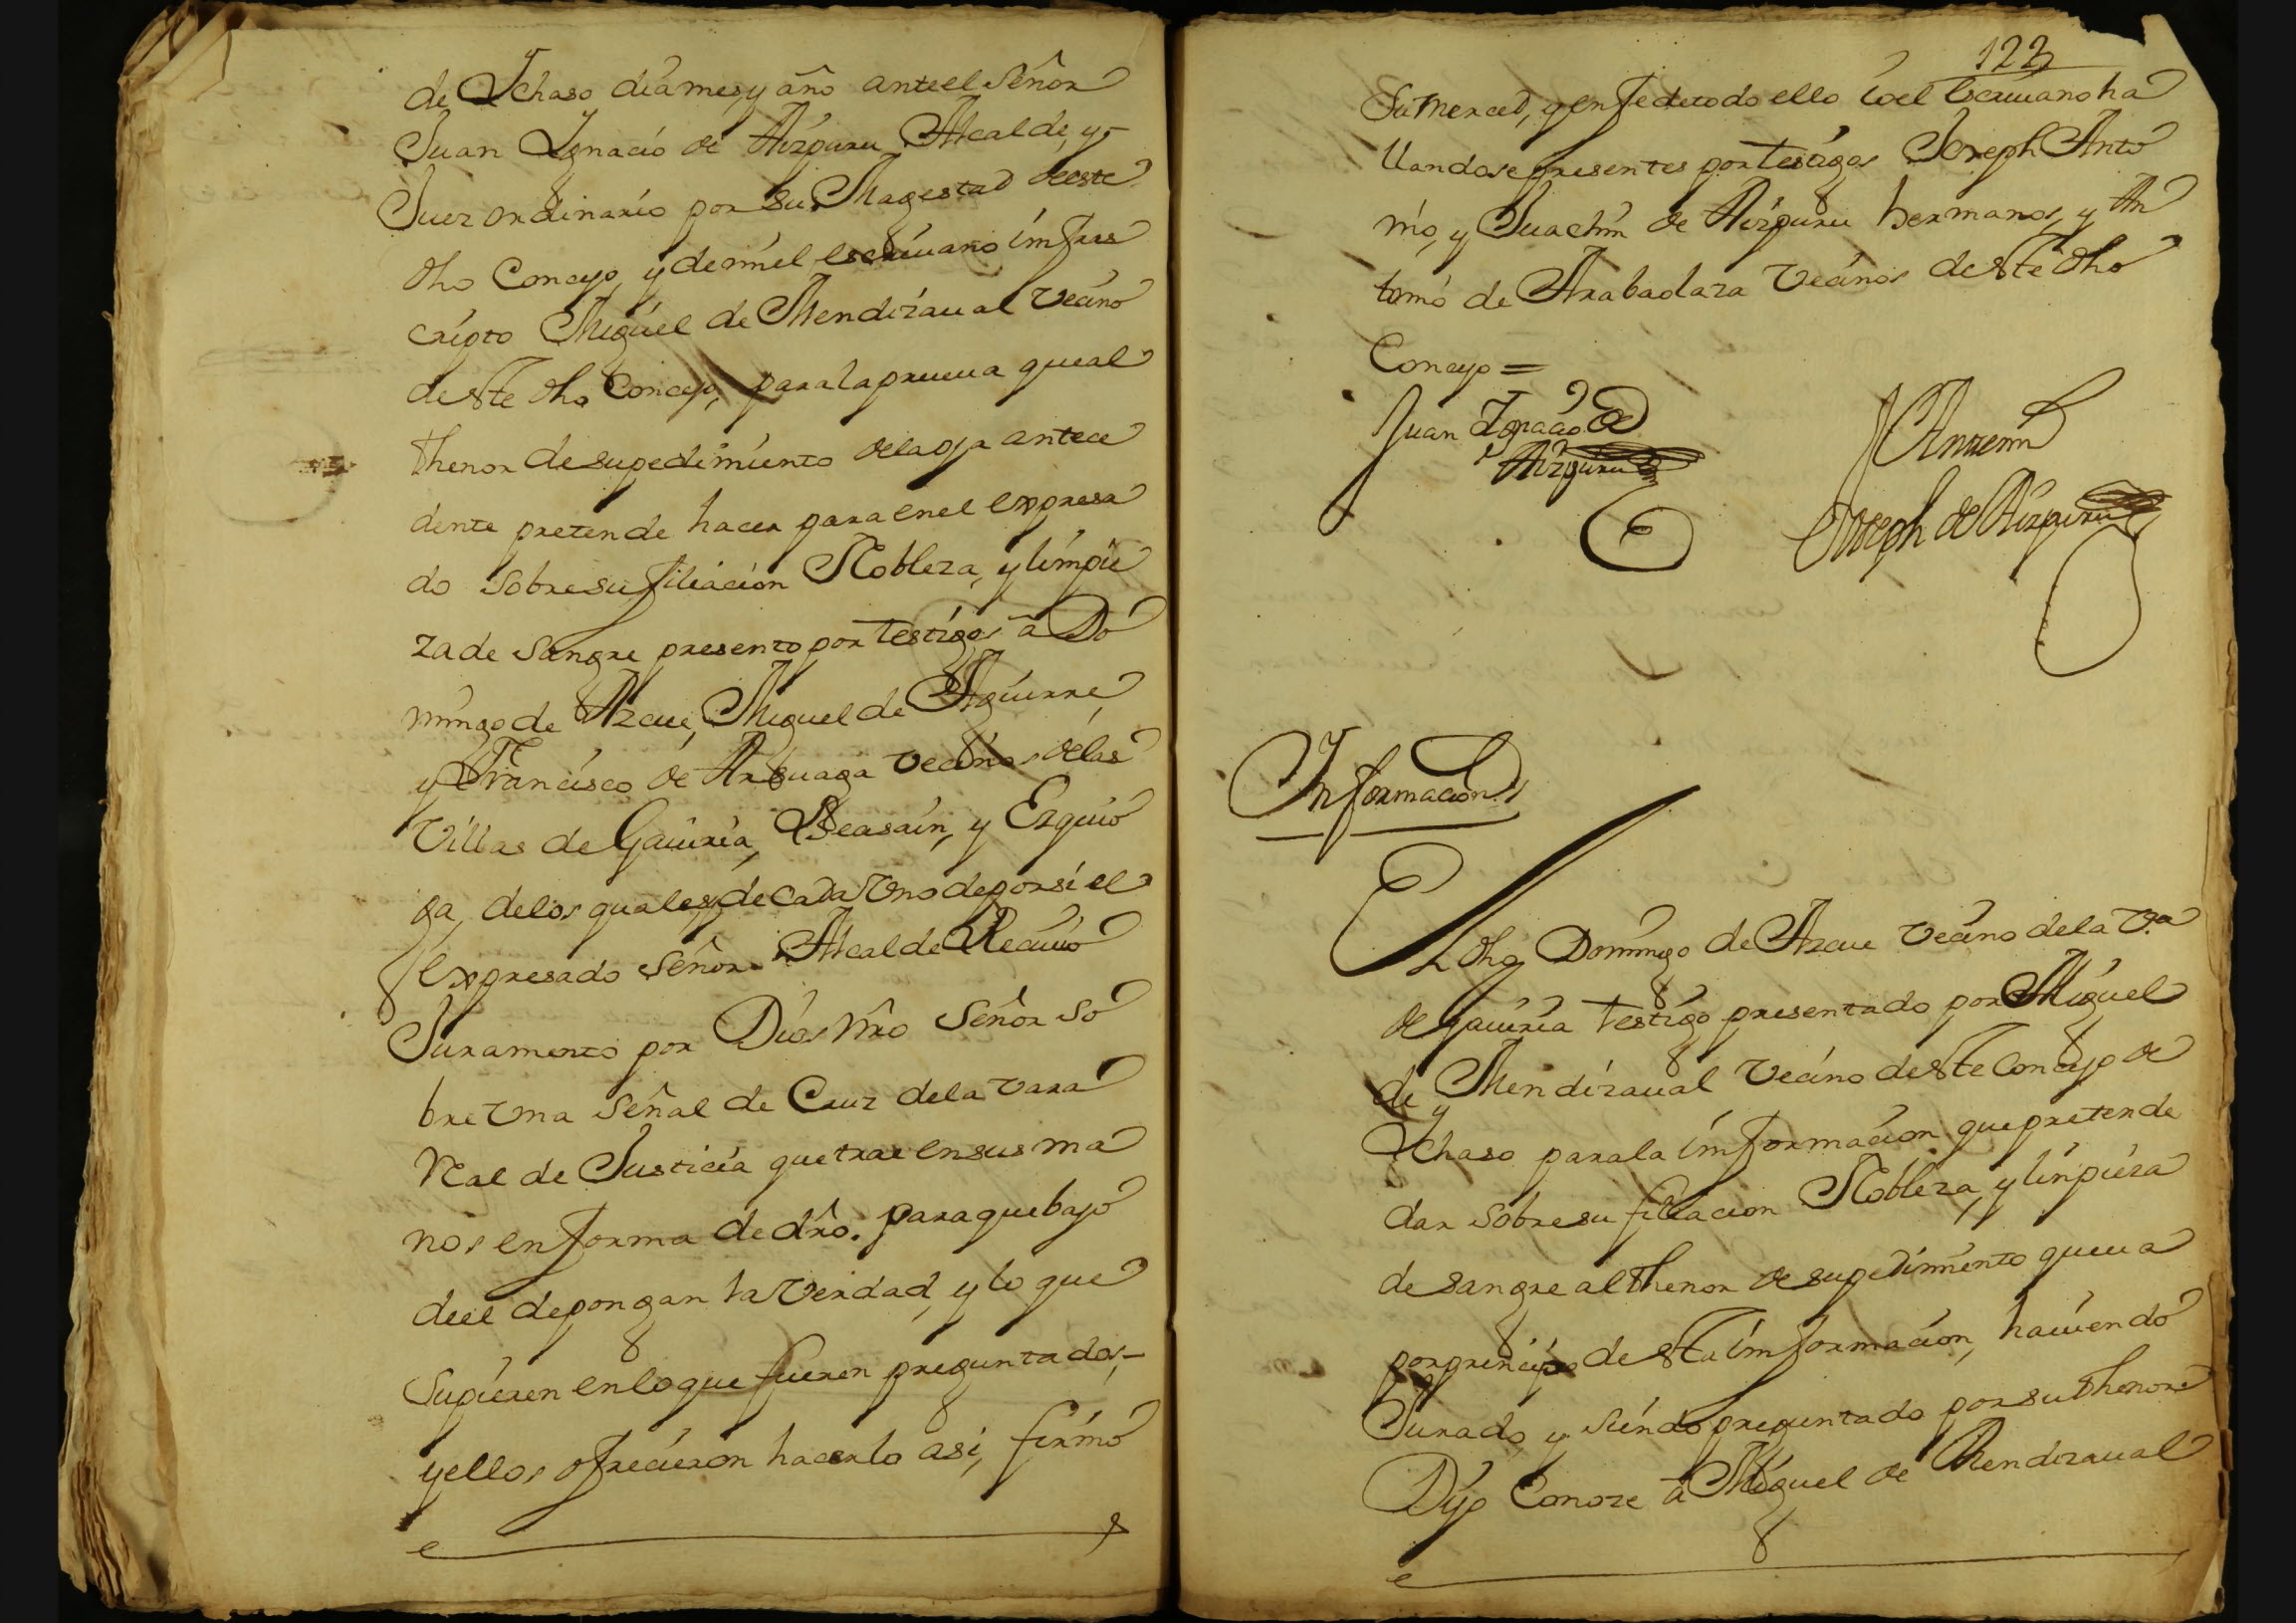 de Ychaso dia mes, y año ante el Señor
Juan Ygnacio de Aizpuru Alcalde, y
Juez ordinario por su Magestad de este
dho Concejo, y de mi el escriuano infras
cripto Miguel de Mendizaual Vecino
deste dho Concejo, para la prueua que al
thenor de su pedimiento de la oja antece
dente pretende hacer para en el expresa
do sobre su filiacion Nobleza, y limpie
za de sangre presento por testigos â Do
mingo de Azcue, Miguel de Aguirre,
y Francisco de Arsuaga vecinos de las
Villas de Gauiria, Beasain, y Ezquio
ga, de los quales, y de cada Vno de por si el
expresado Señor Alcalde Reciuio
Juramento por Dios nro Señor so
bre Vna señal de Cruz de la vara
Real de Justicia que trae en sus ma
nos en forma de dro. para que bajo
de el depongan la Verdad, y lo que
supieren en lo que fueren preguntados,
y ellos ofrecieron hacerlo asi, firmó
123
Su merced, y en fe de todo ello io el escriuano ha
llandose presentes por testigos Joseph Anto
nio, y Juachin de Aizpuru hermanos, y An
tonio de Arabaolaza Vecinos deste dho
Concejo =
Juan Ygnacio de
Aizpuru
Ante mi
Joseph de Aizpuru
Informacion
El dho Domingo de Azcue Vecino de la Va
de gauiria testigo presentado por Miguel
de Mendizaual Vecino deste Concejo de
Ychaso para la informacion que pretende
dar sobre su filiacion Nobleza, y linpieza
de sangre al thenor de su pedimiento que ua
por principio de sta informacion, hauiendo
Jurado, y siendo preguntado por su thenor
Dijo Conoze â Miguel de Mendizaual